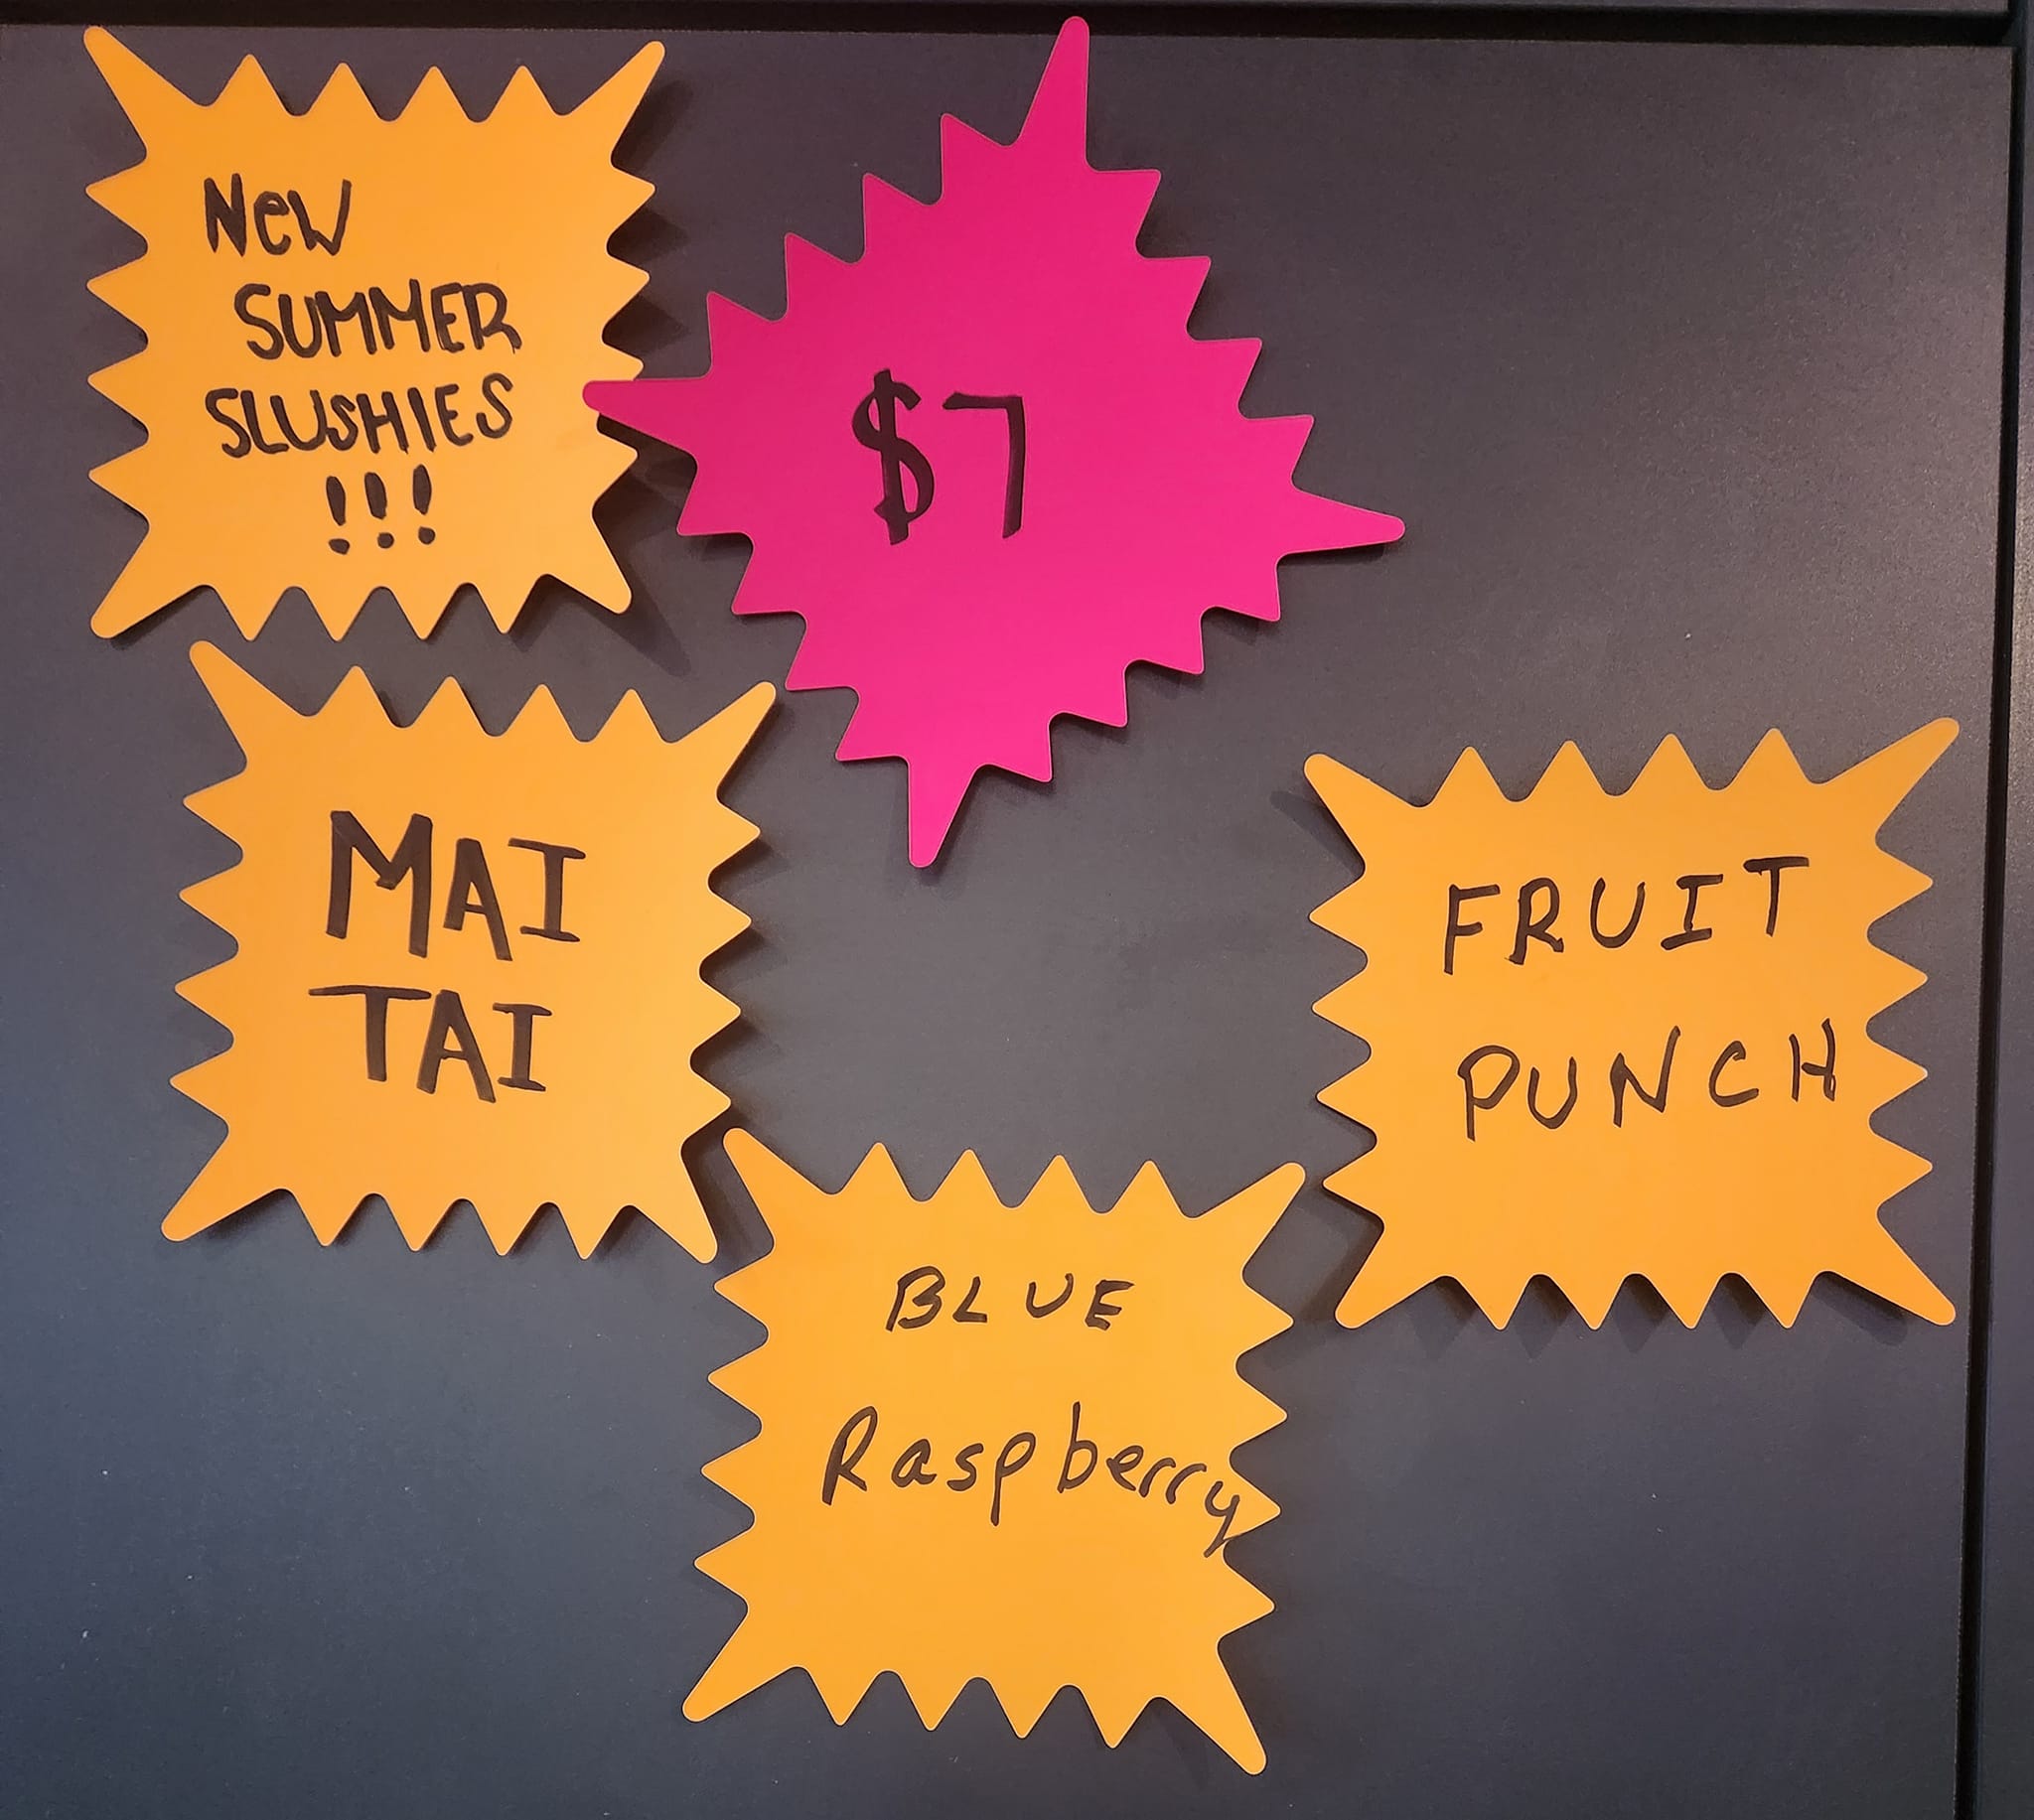 New
SUMMER
SLUSHIES
!!!
$7
MAI
TAI
FRUIT
PUNCH
BLUE
Raspberry